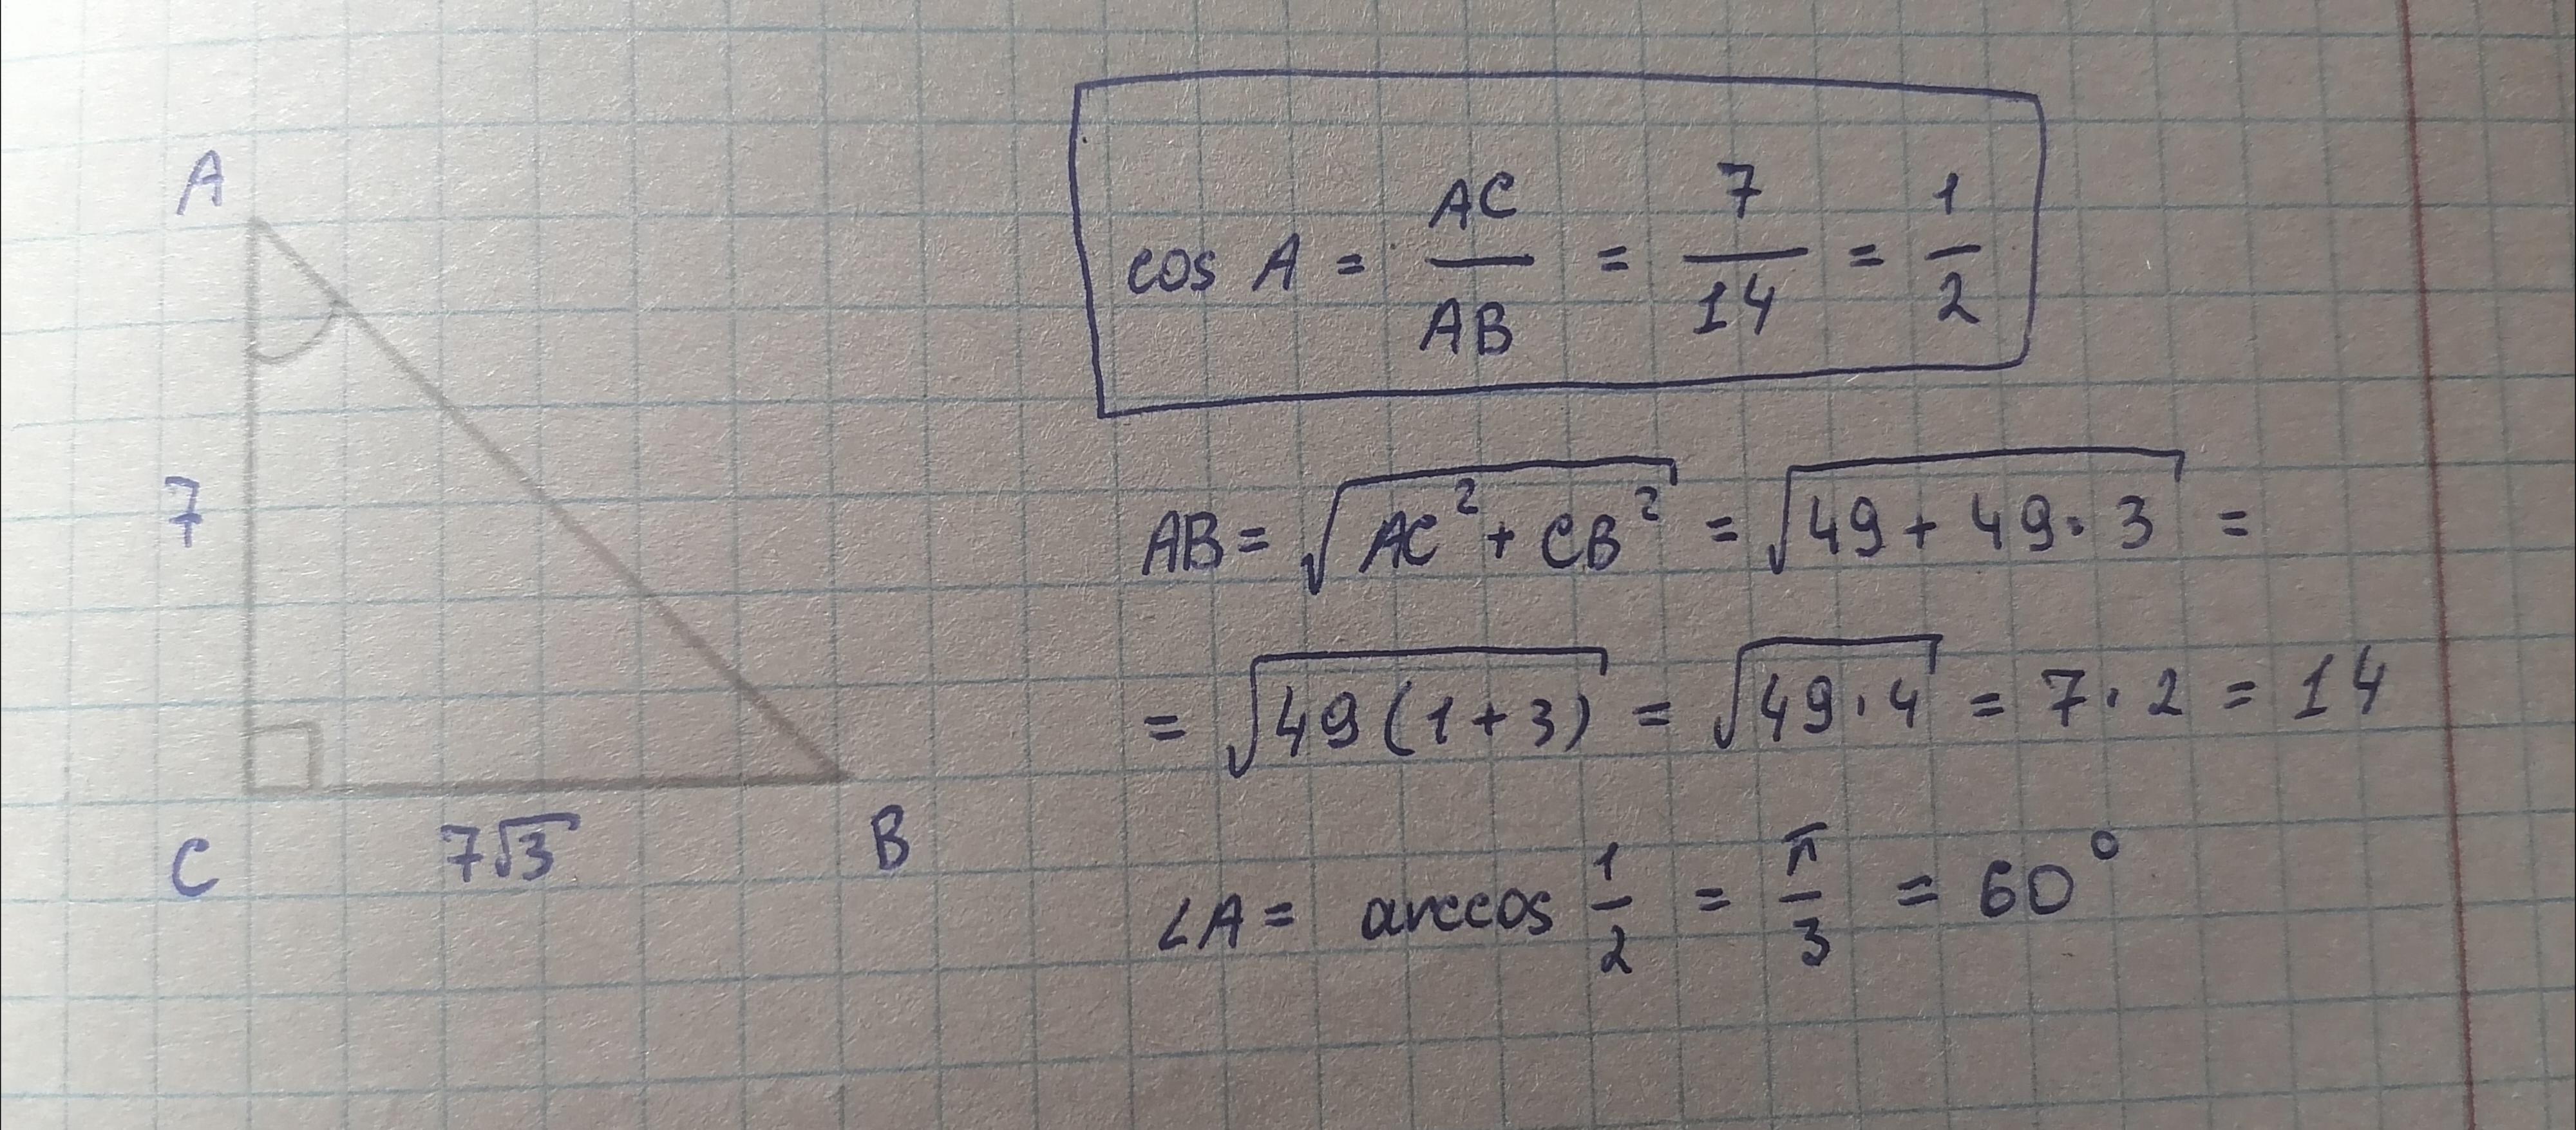 A
7
C
7√3
B
cos A = AC/AB = 7/14 = 1/2
AB = √(AC² + CB²) = √(49 + 49·3) =
= √(49(1+3)) = √(49·4) = 7·2 = 14
∠A = arccos 1/2 = π/3 = 60°